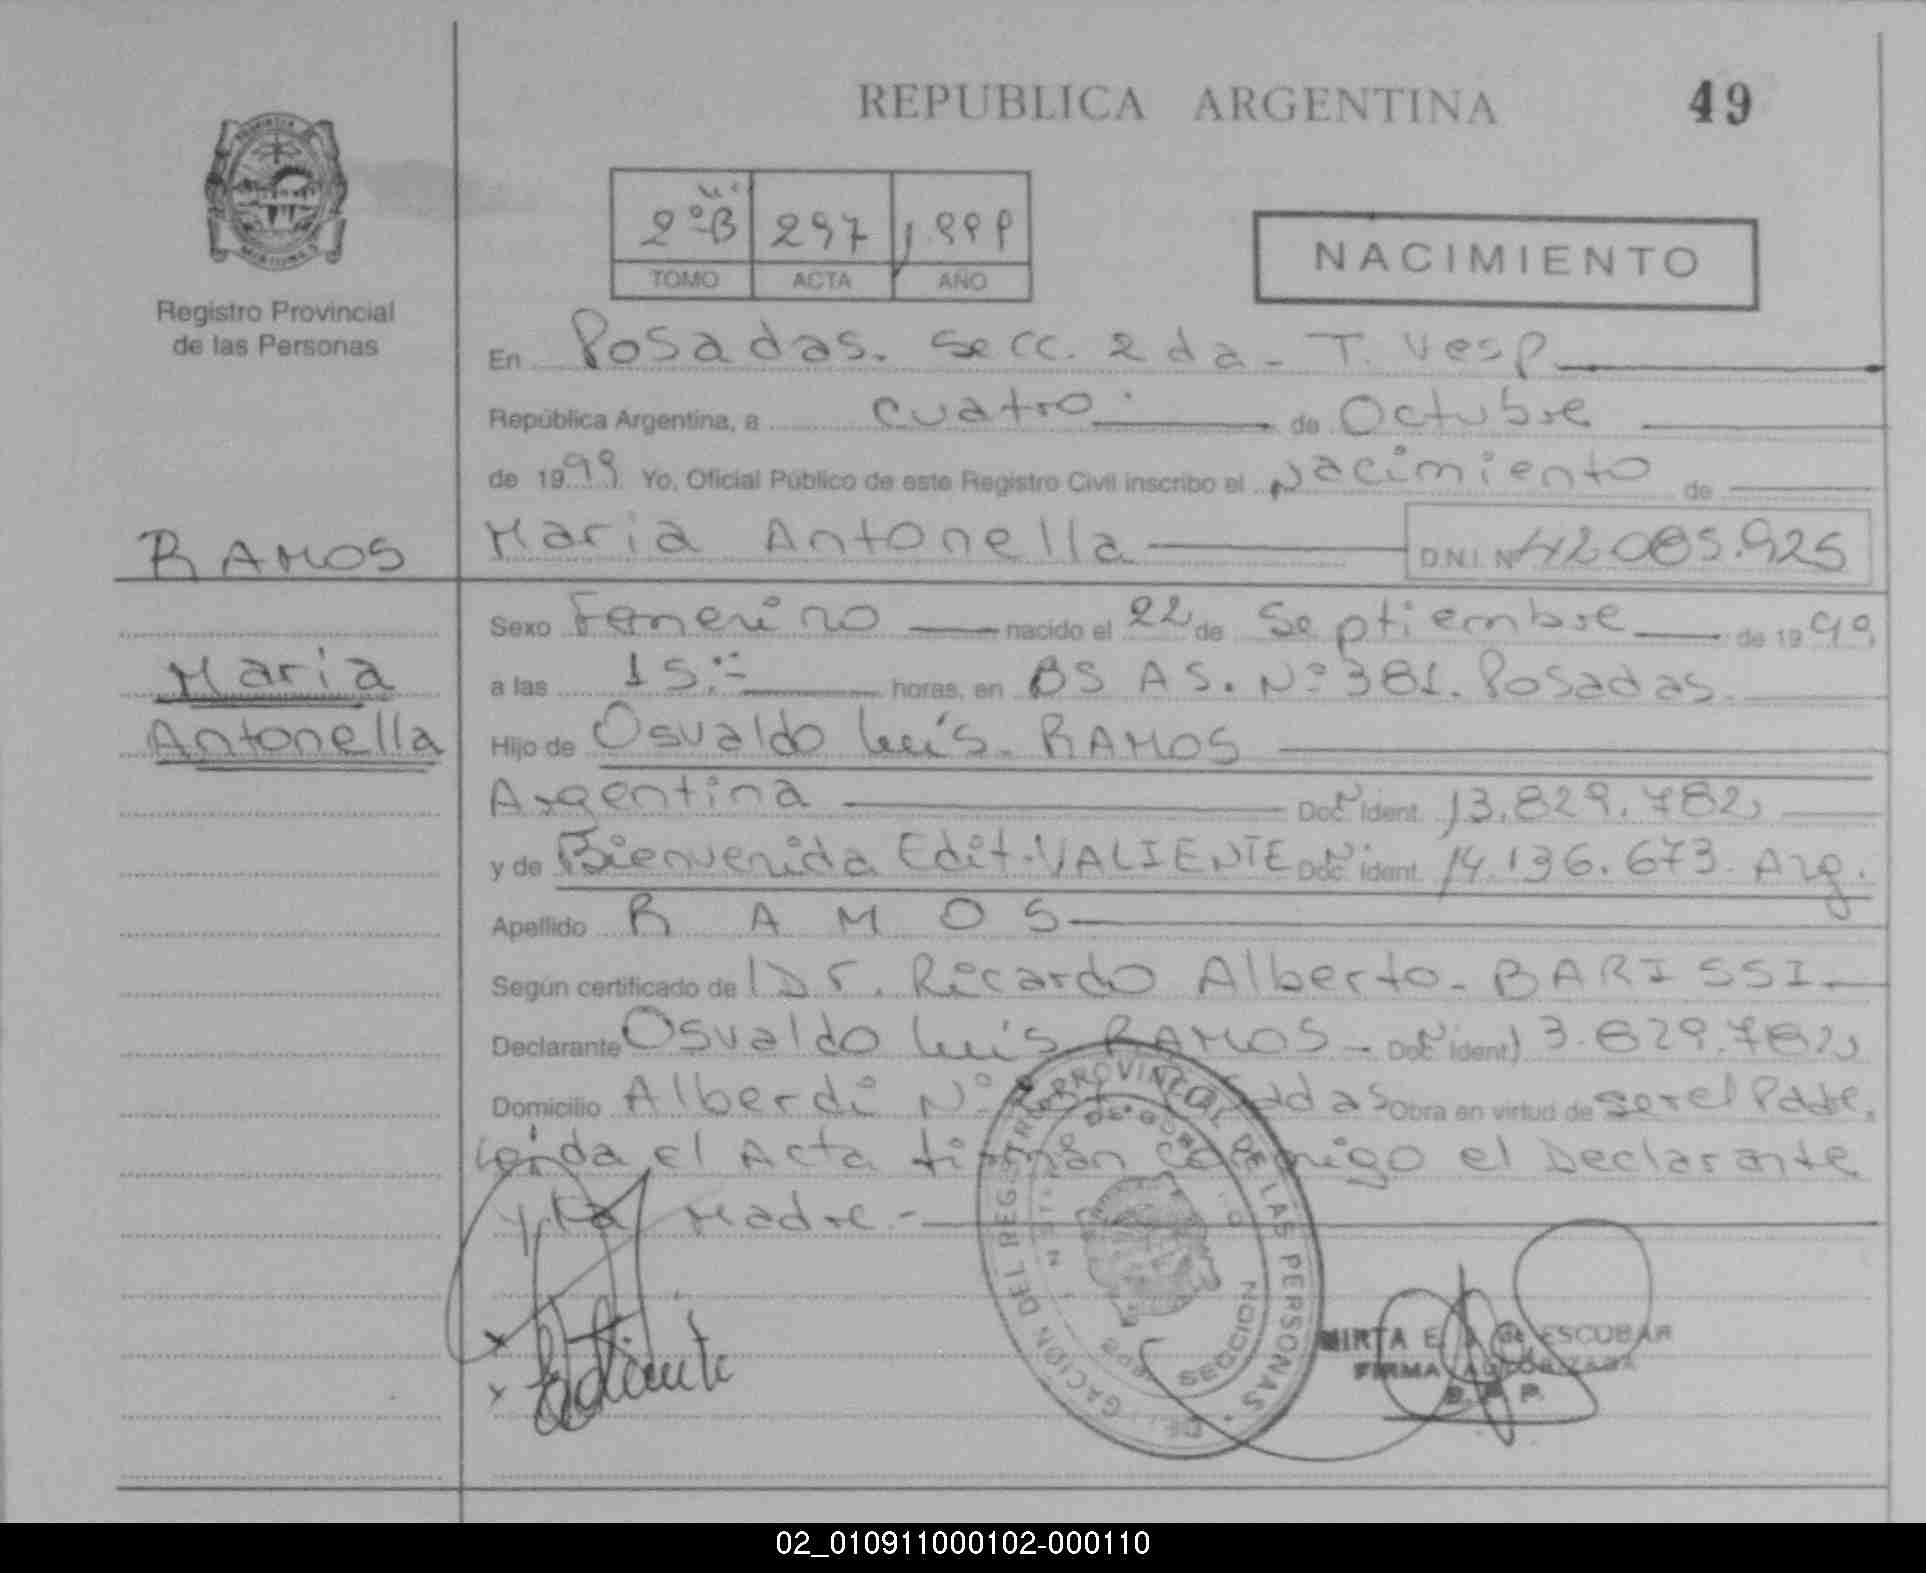 REPUBLICA ARGENTINA 49
Registro Provincial
de las Personas
2º B 297 1.999
TOMO ACTA AÑO
NACIMIENTO
En Posadas. Secc. 2da - T. Vesp
República Argentina, a cuatro de Octubre
de 1999 Yo, Oficial Público de este Registro Civil inscribo el Nacimiento de
RAMOS
Maria Antonella D.N.I. Nº 42.085.925
Maria
Antonella
Sexo Femenino nacido el 22 de Septiembre de 1999
a las 15:= horas, en BS AS. Nº 381. Posadas.
Hijo de Osvaldo Luis RAMOS
Argentina Doc. Ident. 13.829.782
y de Bienvenida Edit. VALIENTE Doc. Ident. 14.136.673. Arg.
Apellido R A M O S
Según certificado de Dr. Ricardo Alberto - BARISSI
Declarante Osvaldo Luis RAMOS - Doc. Ident 13.829.782
Domicilio Alberdi Nº Obra en virtud de ser el Padre.
Leida el Acta firman conmigo el Declarante
y la Madre.-
DELEGACION DEL REGISTRO PROVINCIAL DE LAS PERSONAS
SECCION
MIRTA E. de ESCOBAR
FIRMA AUTORIZADA
02_010911000102-000110